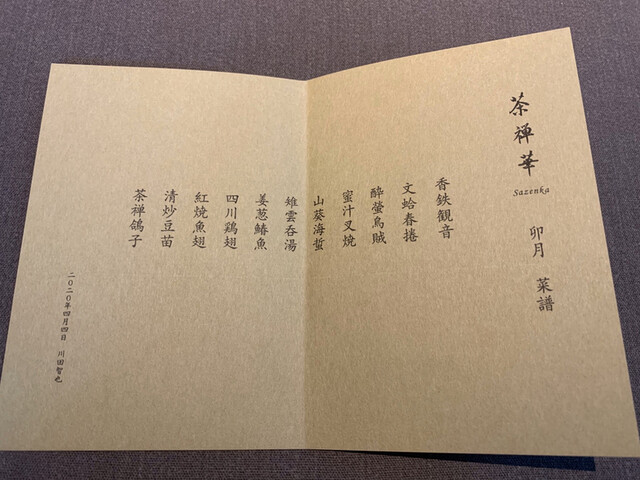 茶禅華
Sazenka
卯月 菜譜
香鉄観音
文蛤春捲
酔螢烏賊
蜜汁叉焼
山葵海蜇
雉雲呑湯
姜葱鰆魚
四川鶏翅
紅焼魚翅
清炒豆苗
茶禅鴿子
二〇二〇年四月四日 川田智也